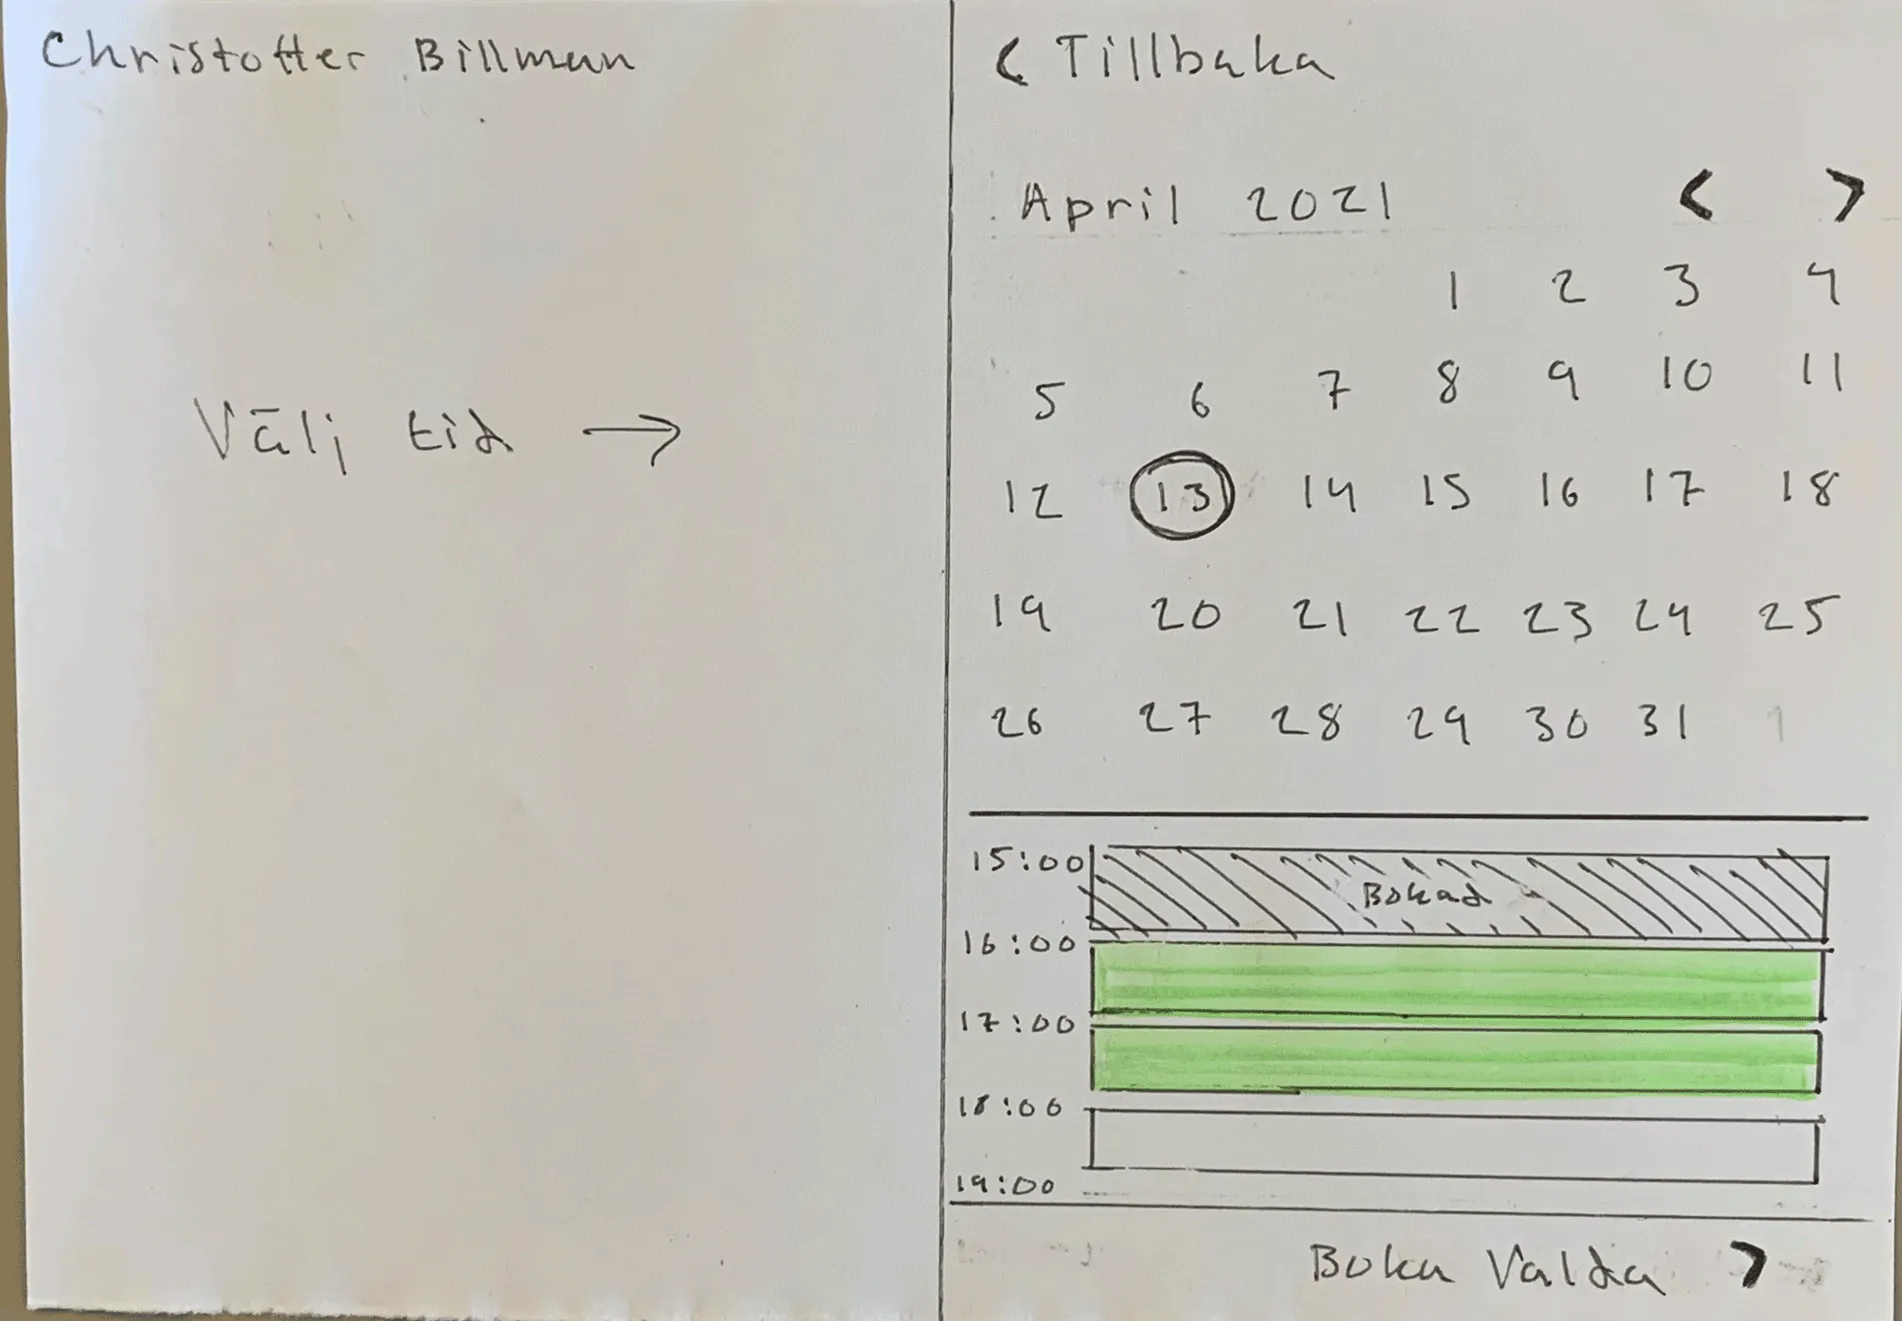 Christoffer Billman
Välj tid →
< Tillbaka
April 2021 < >
1 2 3 4
5 6 7 8 9 10 11
12 13 14 15 16 17 18
19 20 21 22 23 24 25
26 27 28 29 30 31 1
15:00
Bokad
16:00
17:00
18:00
19:00
Boka Valda >